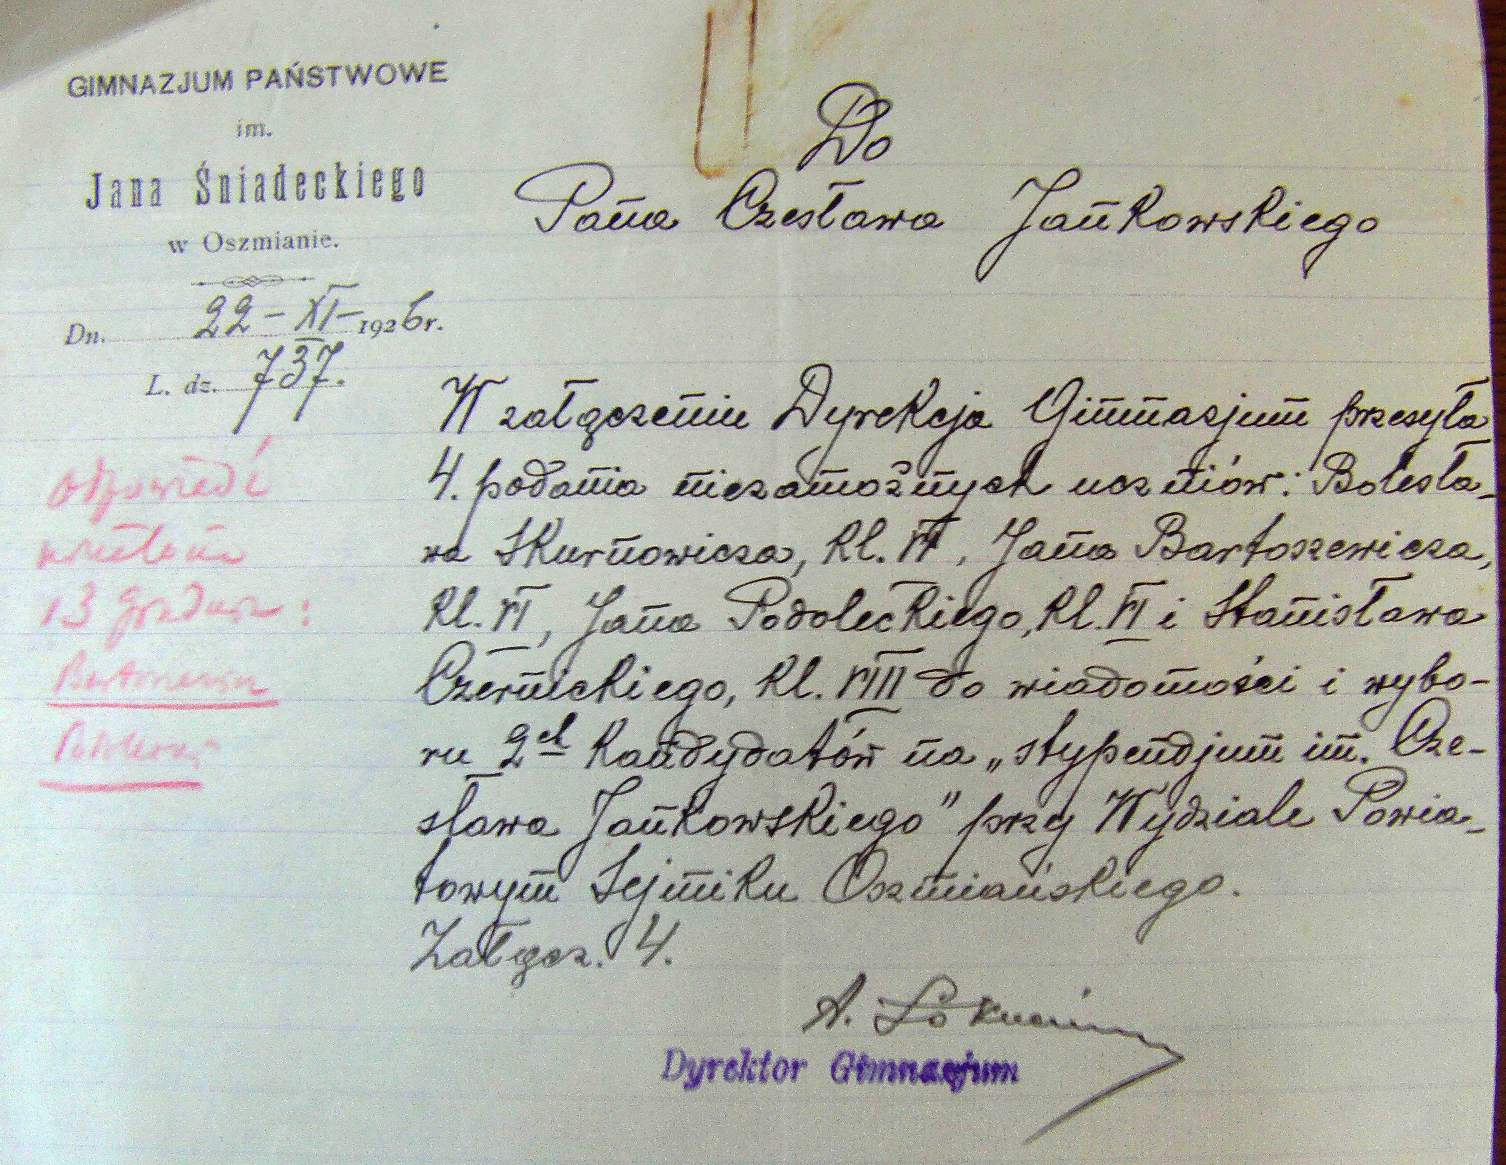 GIMNAZJUM PAŃSTWOWE
im.
Jana Śniadeckiego
w Oszmianie.
Dn. 22-XI-1926r.
L. dz. 737.
Do
Pana Czesława Jankowskiego
W załączeniu Dyrekcja Gimnazjum przesyła
4. podania niezamożnych uczniów: Bolesła-
wa Skurnowicza, kl. VI, Jana Bartoszewicza,
kl. VI, Jana Podoleckiego, kl. VI i Stanisława
Czernickiego, kl. VIII do wiadomości i wybo-
ru 2ch kandydatów na „stypendjum im. Cze-
sława Jankowskiego" przy Wydziale Powia-
towym Sejmiku Oszmiańskiego.
Załącz. 4.
A.
Dyrektor Gimnazjum
odpowiedź
wysłana
13 grudnia: